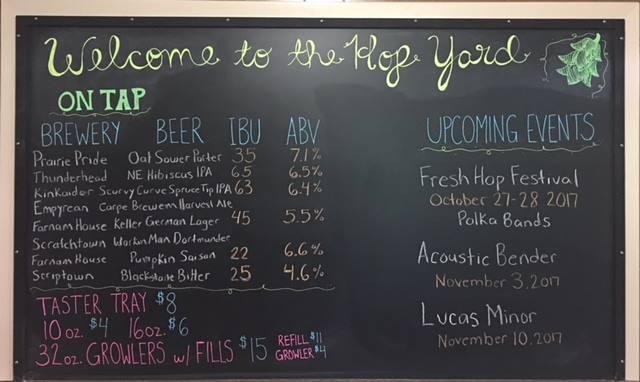 Welcome to the Hop Yard
ON TAP
BREWERY BEER IBU ABV
Prairie Pride Oat Sower Porter 35 7.1%
Thunderhead NE Hibiscus IPA 65 6.5%
Kinkaider Scurvy Curve Spruce Tip IPA 63 6.4%
Empyrean Carpe Brewem Harvest Ale
Farnam House Keller German Lager 45 5.5%
Scratchtown Workin Man Dortmunder
Farnam House Pumpkin Saison 22 6.6%
Scriptown Blackstone Bitter 25 4.6%
TASTER TRAY $8
10 oz. $4 16oz. $6
32 oz. GROWLERS w/ FILLS $15 REFILL $11
GROWLER $4
UPCOMING EVENTS
Fresh Hop Festival
October 27-28 2017
Polka Bands
Acoustic Bender
November 3, 2017
Lucas Minor
November 10, 2017